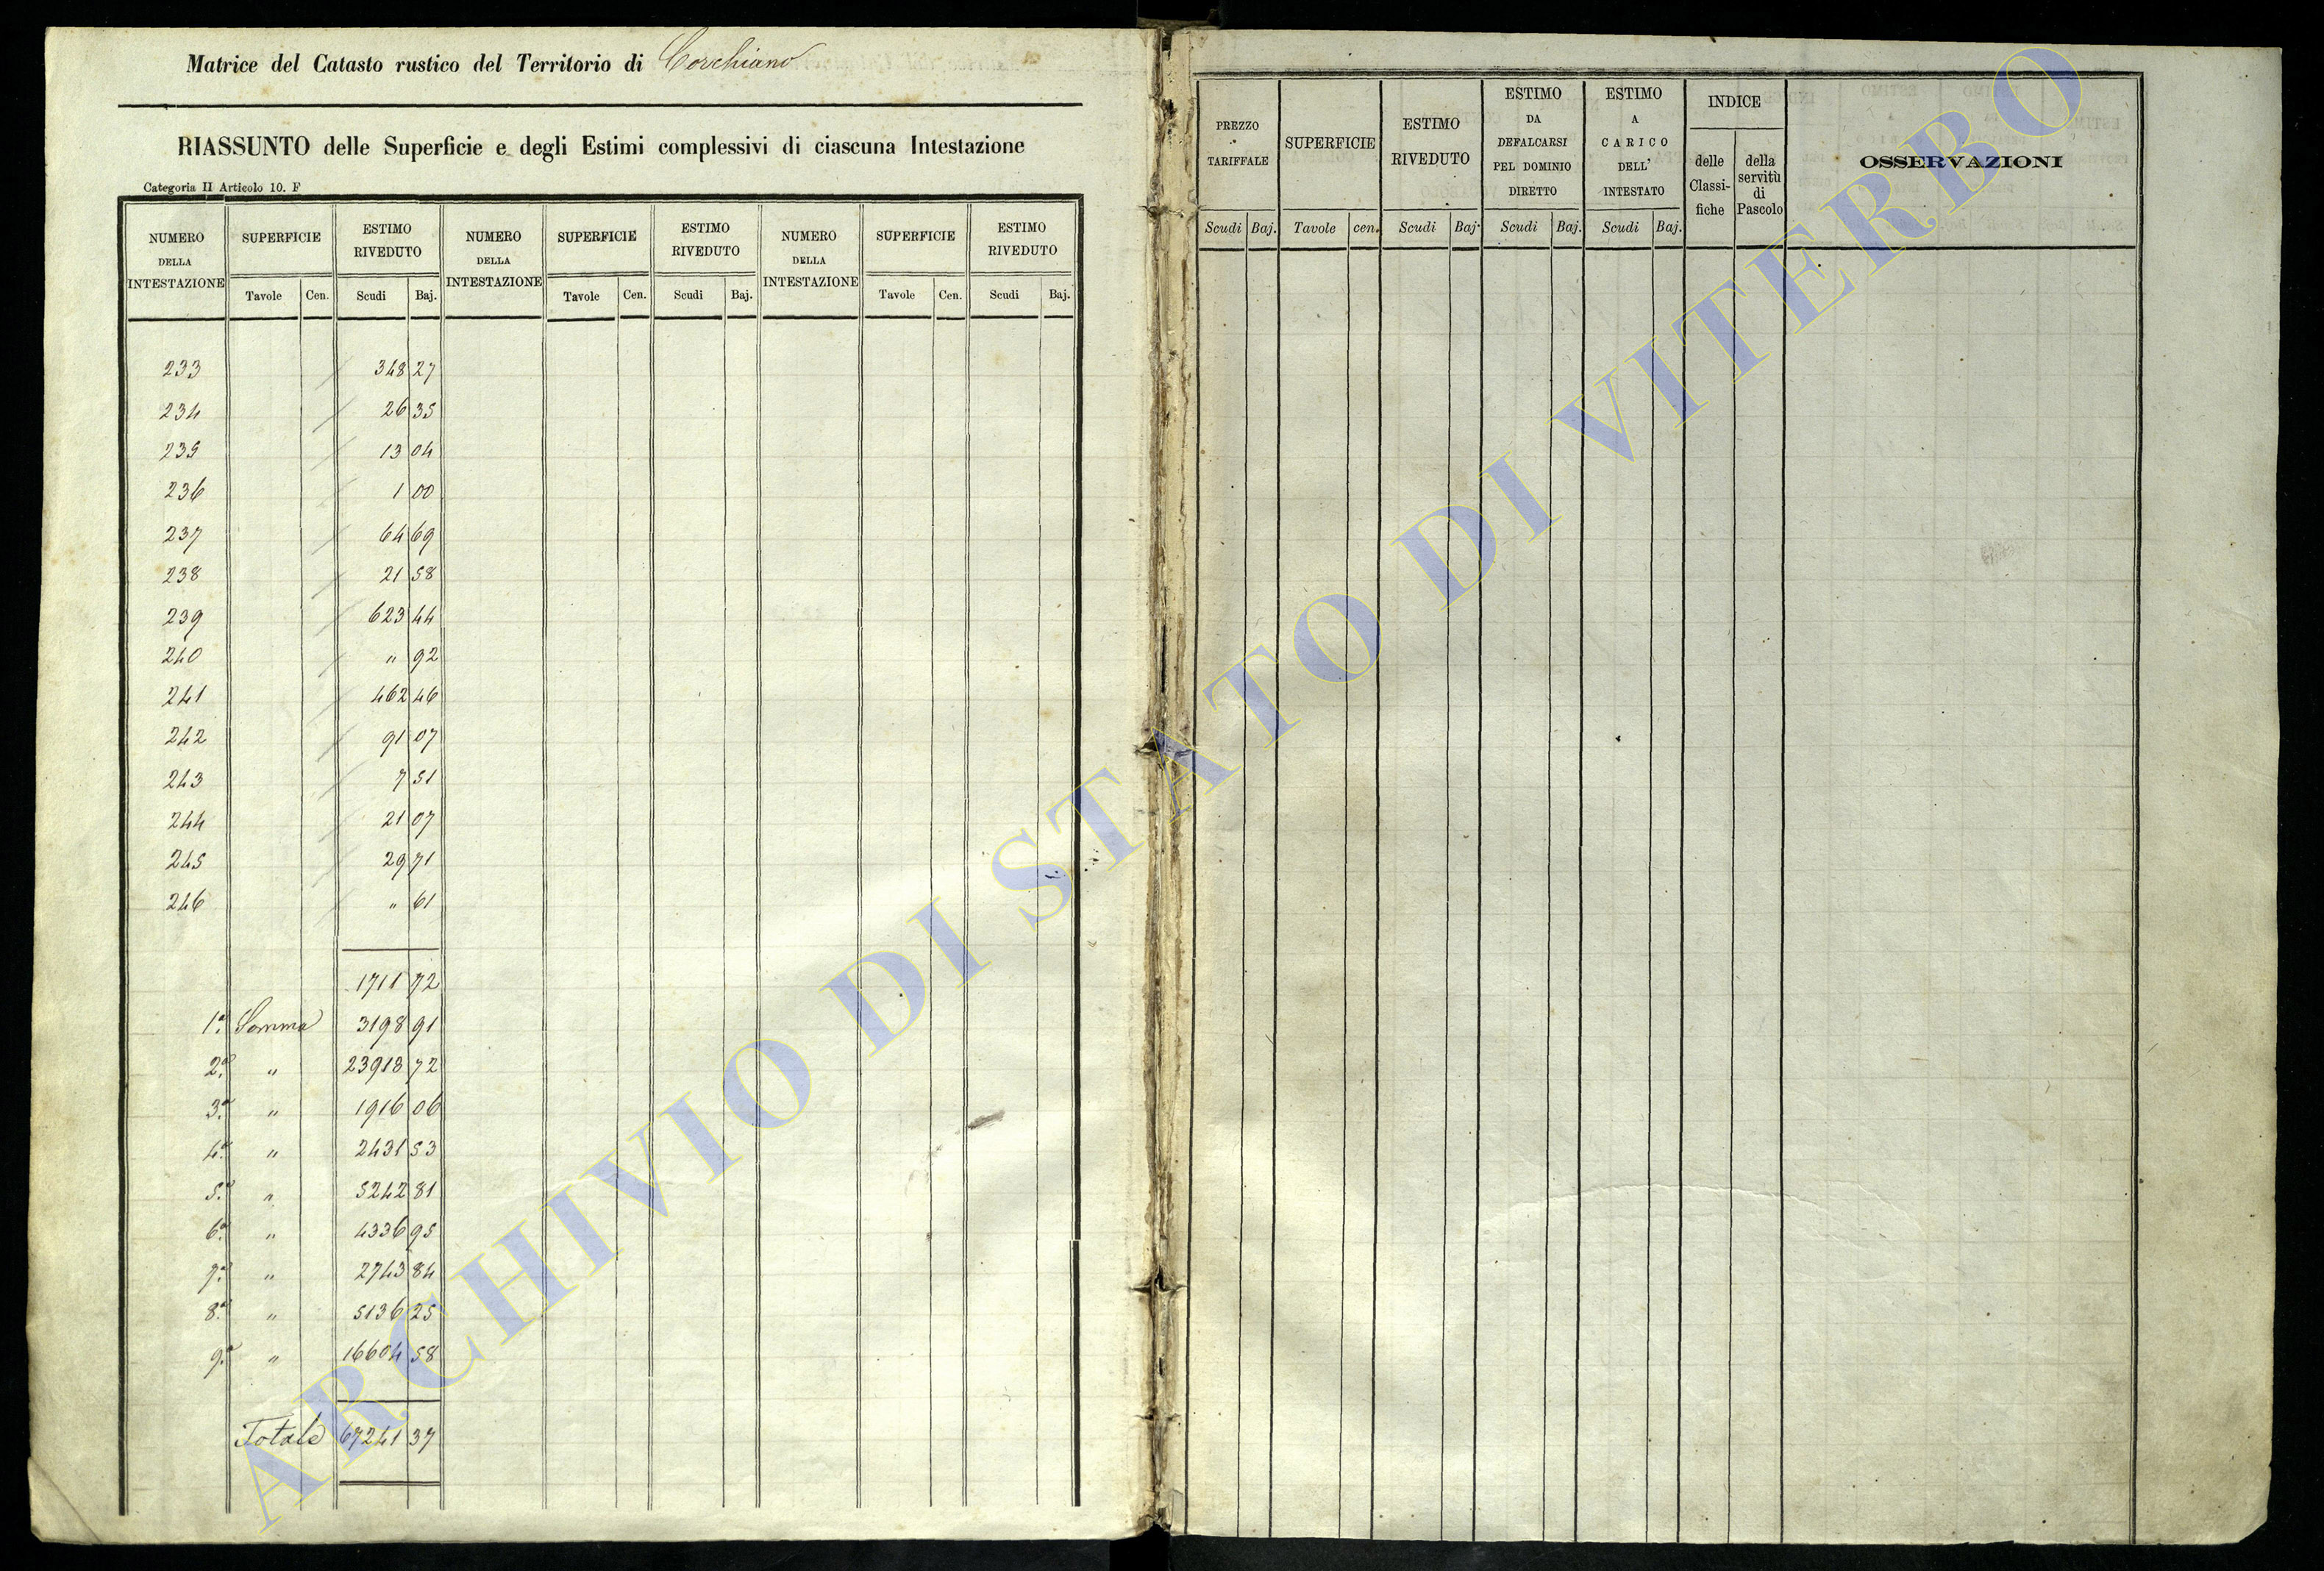 Matrice del Catasto rustico del Territorio di Corchiano
RIASSUNTO delle Superficie e degli Estimi complessivi di ciascuna Intestazione
Categoria II Articolo 10. F
NUMERO DELLA INTESTAZIONE SUPERFICIE ESTIMO RIVEDUTO NUMERO DELLA INTESTAZIONE SUPERFICIE ESTIMO RIVEDUTO NUMERO DELLA INTESTAZIONE SUPERFICIE ESTIMO RIVEDUTO
Tavole Cen. Scudi Baj. Tavole Cen. Scudi Baj. Tavole Cen. Scudi Baj.
233 348 27
234 26 35
235 13 04
236 1 00
237 64 69
238 21 58
239 623 44
240 " 92
241 462 46
242 91 07
243 7 51
244 21 07
245 29 71
246 " 61
1711 72
1a. Somma 3198 91
2a. " 23918 72
3a. " 1916 06
4a. " 2431 53
5a. " 5242 81
6a. " 4336 95
7a. " 2743 84
8a. " 5136 25
9a. " 16604 58
Totale 67241 37
PREZZO TARIFFALE SUPERFICIE ESTIMO RIVEDUTO ESTIMO DA DEFALCARSI PEL DOMINIO DIRETTO ESTIMO A CARICO DELL' INTESTATO INDICE delle Classifiche della servitù di Pascolo OSSERVAZIONI
Scudi Baj. Tavole cen. Scudi Baj. Scudi Baj. Scudi Baj.
ARCHIVIO DI STATO DI VITERBO